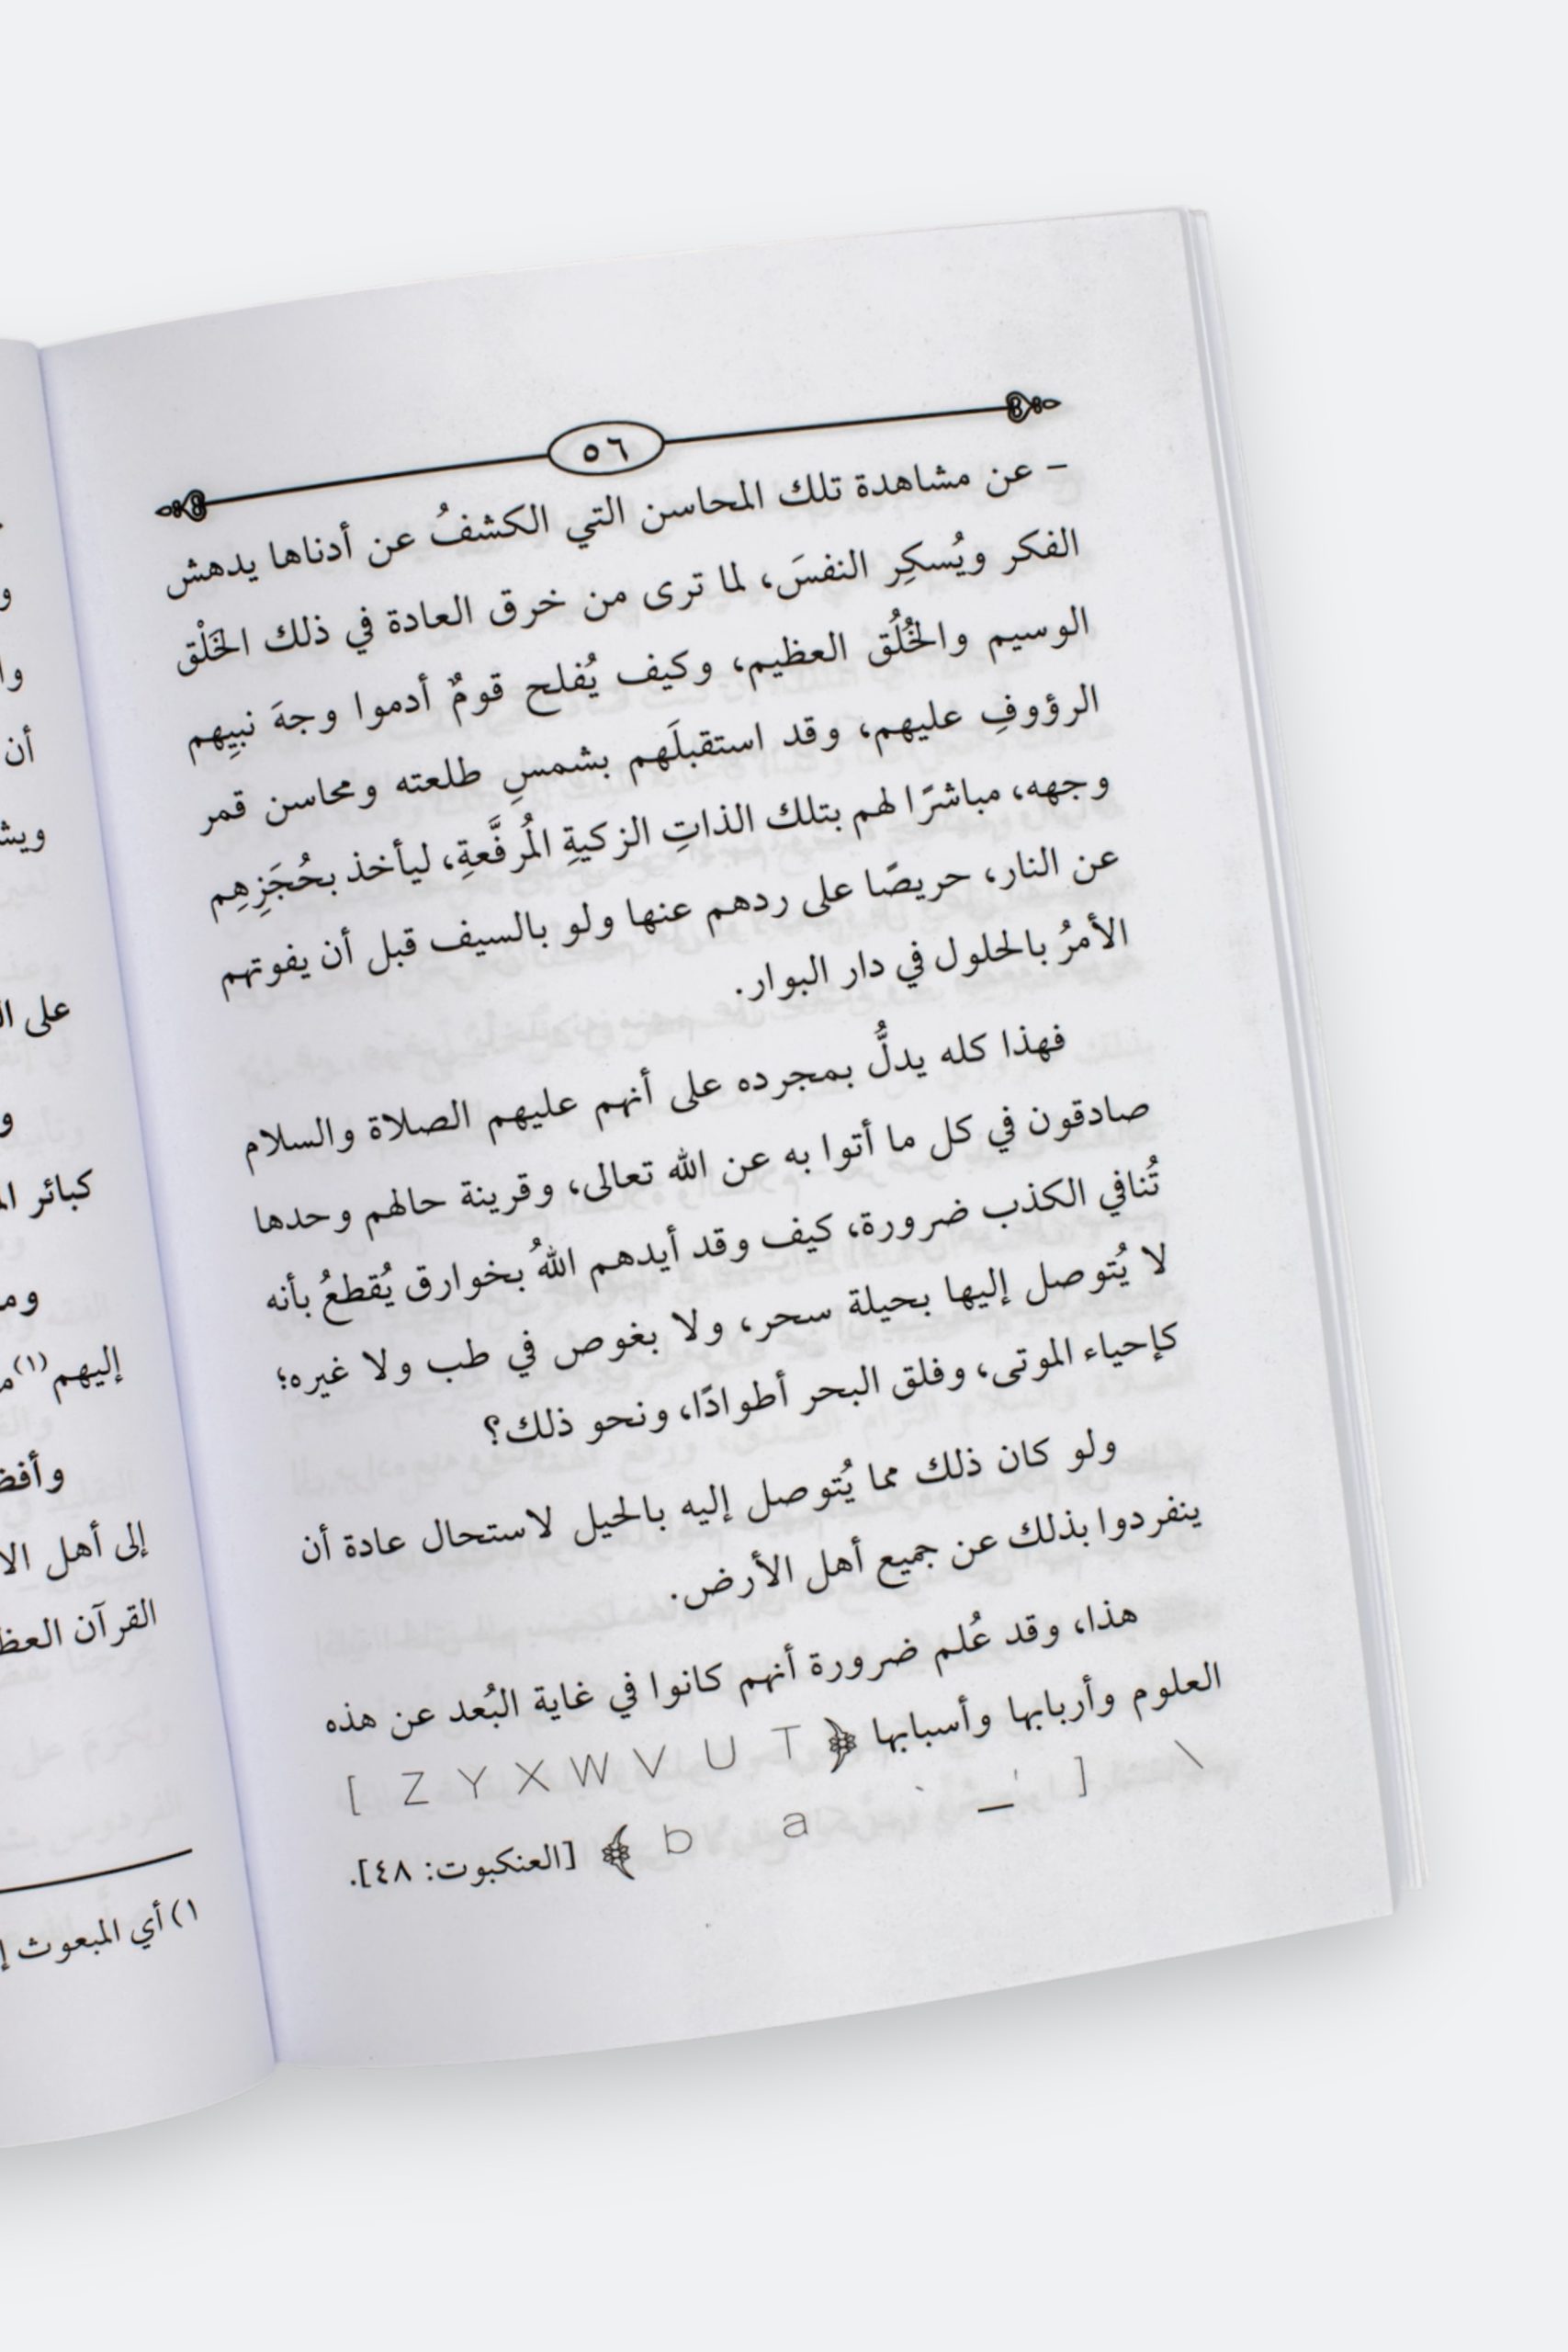 ٥٦
- عن مشاهدة تلك المحاسن التي الكشفُ عن أدناها يدهش
الفكر ويُسكِر النفسَ، لما ترى من خرق العادة في ذلك الخَلْق
الوسيم والخُلُق العظيم، وكيف يُفلح قومٌ أدموا وجهَ نبيِهم
الرؤوفِ عليهم، وقد استقبلَهم بشمسِ طلعته ومحاسن قمر
وجهه، مباشرًا لهم بتلك الذاتِ الزكيةِ المُرفَّعةِ، ليأخذ بحُجَزِهِم
عن النار، حريصًا على ردهم عنها ولو بالسيف قبل أن يفوتهم
الأمرُ بالحلول في دار البوار.
فهذا كله يدلُّ بمجرده على أنهم عليهم الصلاة والسلام
صادقون في كل ما أتوا به عن الله تعالى، وقرينة حالهم وحدها
تُنافي الكذب ضرورة، كيف وقد أيدهم اللهُ بخوارق يُقطعُ بأنه
لا يُتوصل إليها بحيلة سحر، ولا بغوص في طب ولا غيره؛
كإحياء الموتى، وفلق البحر أطوادًا، ونحو ذلك؟
ولو كان ذلك مما يُتوصل إليه بالحيل لاستحال عادة أن
ينفردوا بذلك عن جميع أهل الأرض.
هذا، وقد عُلم ضرورة أنهم كانوا في غاية البُعد عن هذه
العلوم وأربابها وأسبابها ﴿ T U V W X Y Z [
\ ] ' _ ` a b ﴾ [العنكبوت: ٤٨].
أن
على
كبائر
إليهم(١)
إلى أهل
القرآن
١) أي المبعوث